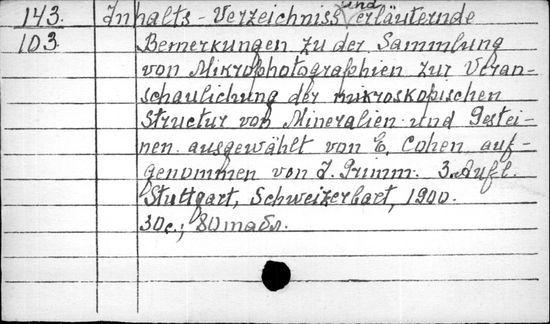 143. Inhalts-Verzeichniss und erläuternde
103. Bemerkungen zu der Sammlung
von Mikrophotographien zur Veran-
schaulichung der mikroskopischen
Structur von Mineralien und Gestei-
nen ausgewählt von E. Cohen auf-
genommen von J. Grimm. 3. Aufl.
Stuttgart, Schweizerbart, 1900.
30с.; 80 табл.